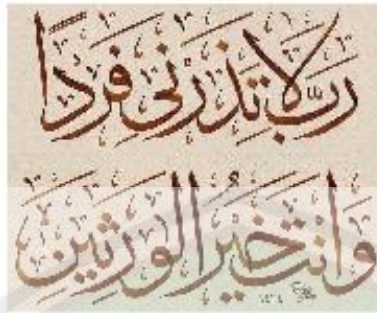 رَبِّ لَا تَذَرْنِي فَرْدًا
وَأَنتَ خَيْرُ الْوَرِثِينَ